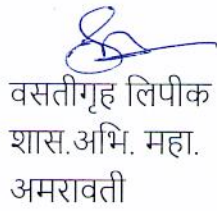 वसतीगृह लिपीक
शास.अभि. महा.
अमरावती